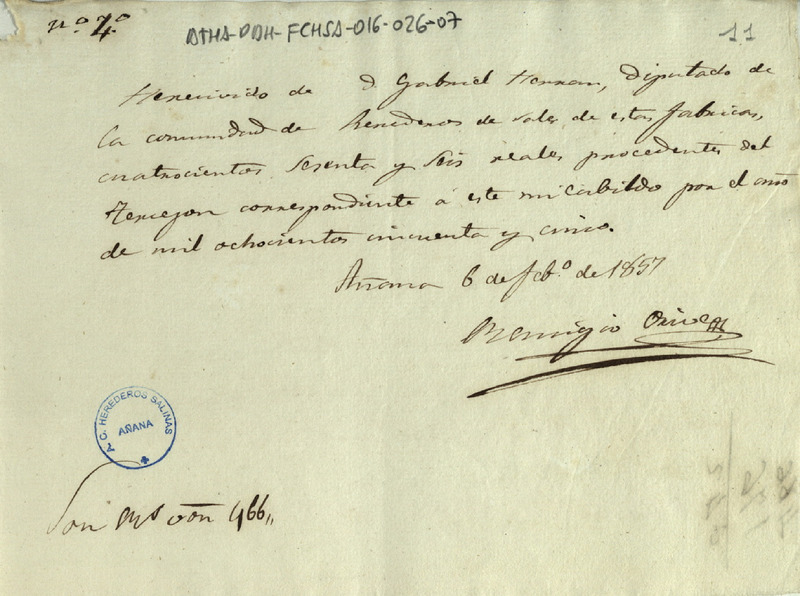 nº 7º
4.
ATHA-DAH-FCHSA-016-026-07
11
He recivido de D. Gabriel Herran, Diputado de
la comunidad de Herederos de sales de estas fabricas,
cuatrocientos sesenta y seis reales procedentes del
Tercejon correspondiente á este mi cabildo por el año
de mil ochocientos cincuenta y cinco.
Añana 6 de febº de 1857
Remigio
A. C. HEREDEROS SALINAS
AÑANA
Son von 466,,